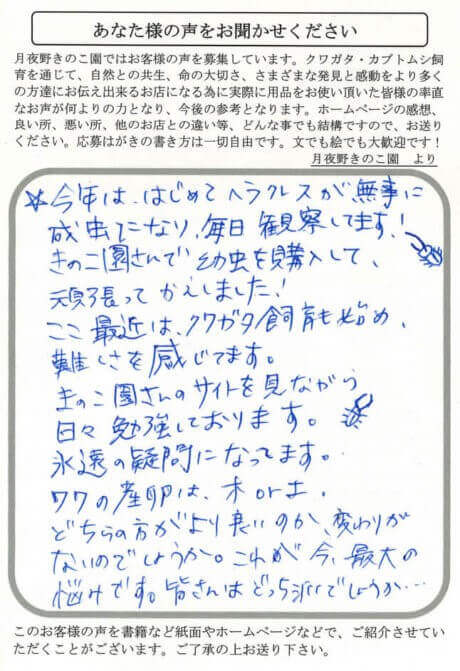 あなた様の声をお聞かせください
月夜野きのこ園ではお客様の声を募集しています。クワガタ・カブトムシ飼
育を通じて、自然との共生、命の大切さ、さまざまな発見と感動をより多く
の方達にお伝え出来るお店になる為に実際に用品をお使い頂いた皆様の率直
なお声が何よりの力となり、今後の参考となります。ホームページの感想、
良い所、悪い所、他のお店との違い等、どんな事でも結構ですので、お送り
ください。応募はがきの書き方は一切自由です。文でも絵でも大歓迎です！
月夜野きのこ園　より
☆今年は、はじめてヘラクレスが無事に
成虫になり、毎日観察してます！
きのこ園さんで幼虫を購入して、
頑張ってかえしました！
ここ最近は、クワガタ飼育も始め、
難しさを感じてます。
きのこ園さんのサイトを見ながら
日々勉強しております。
永遠の疑問になってます。
クワの産卵は、木or土、
どちらの方がより良いのか、変わりが
ないのでしょうか。これが今、最大の
悩みです。皆さんはどっち派でしょうか…
このお客様の声を書籍など紙面やホームページなどで、ご紹介させてい
ただくことがございます。ご了承の上お送り下さい。